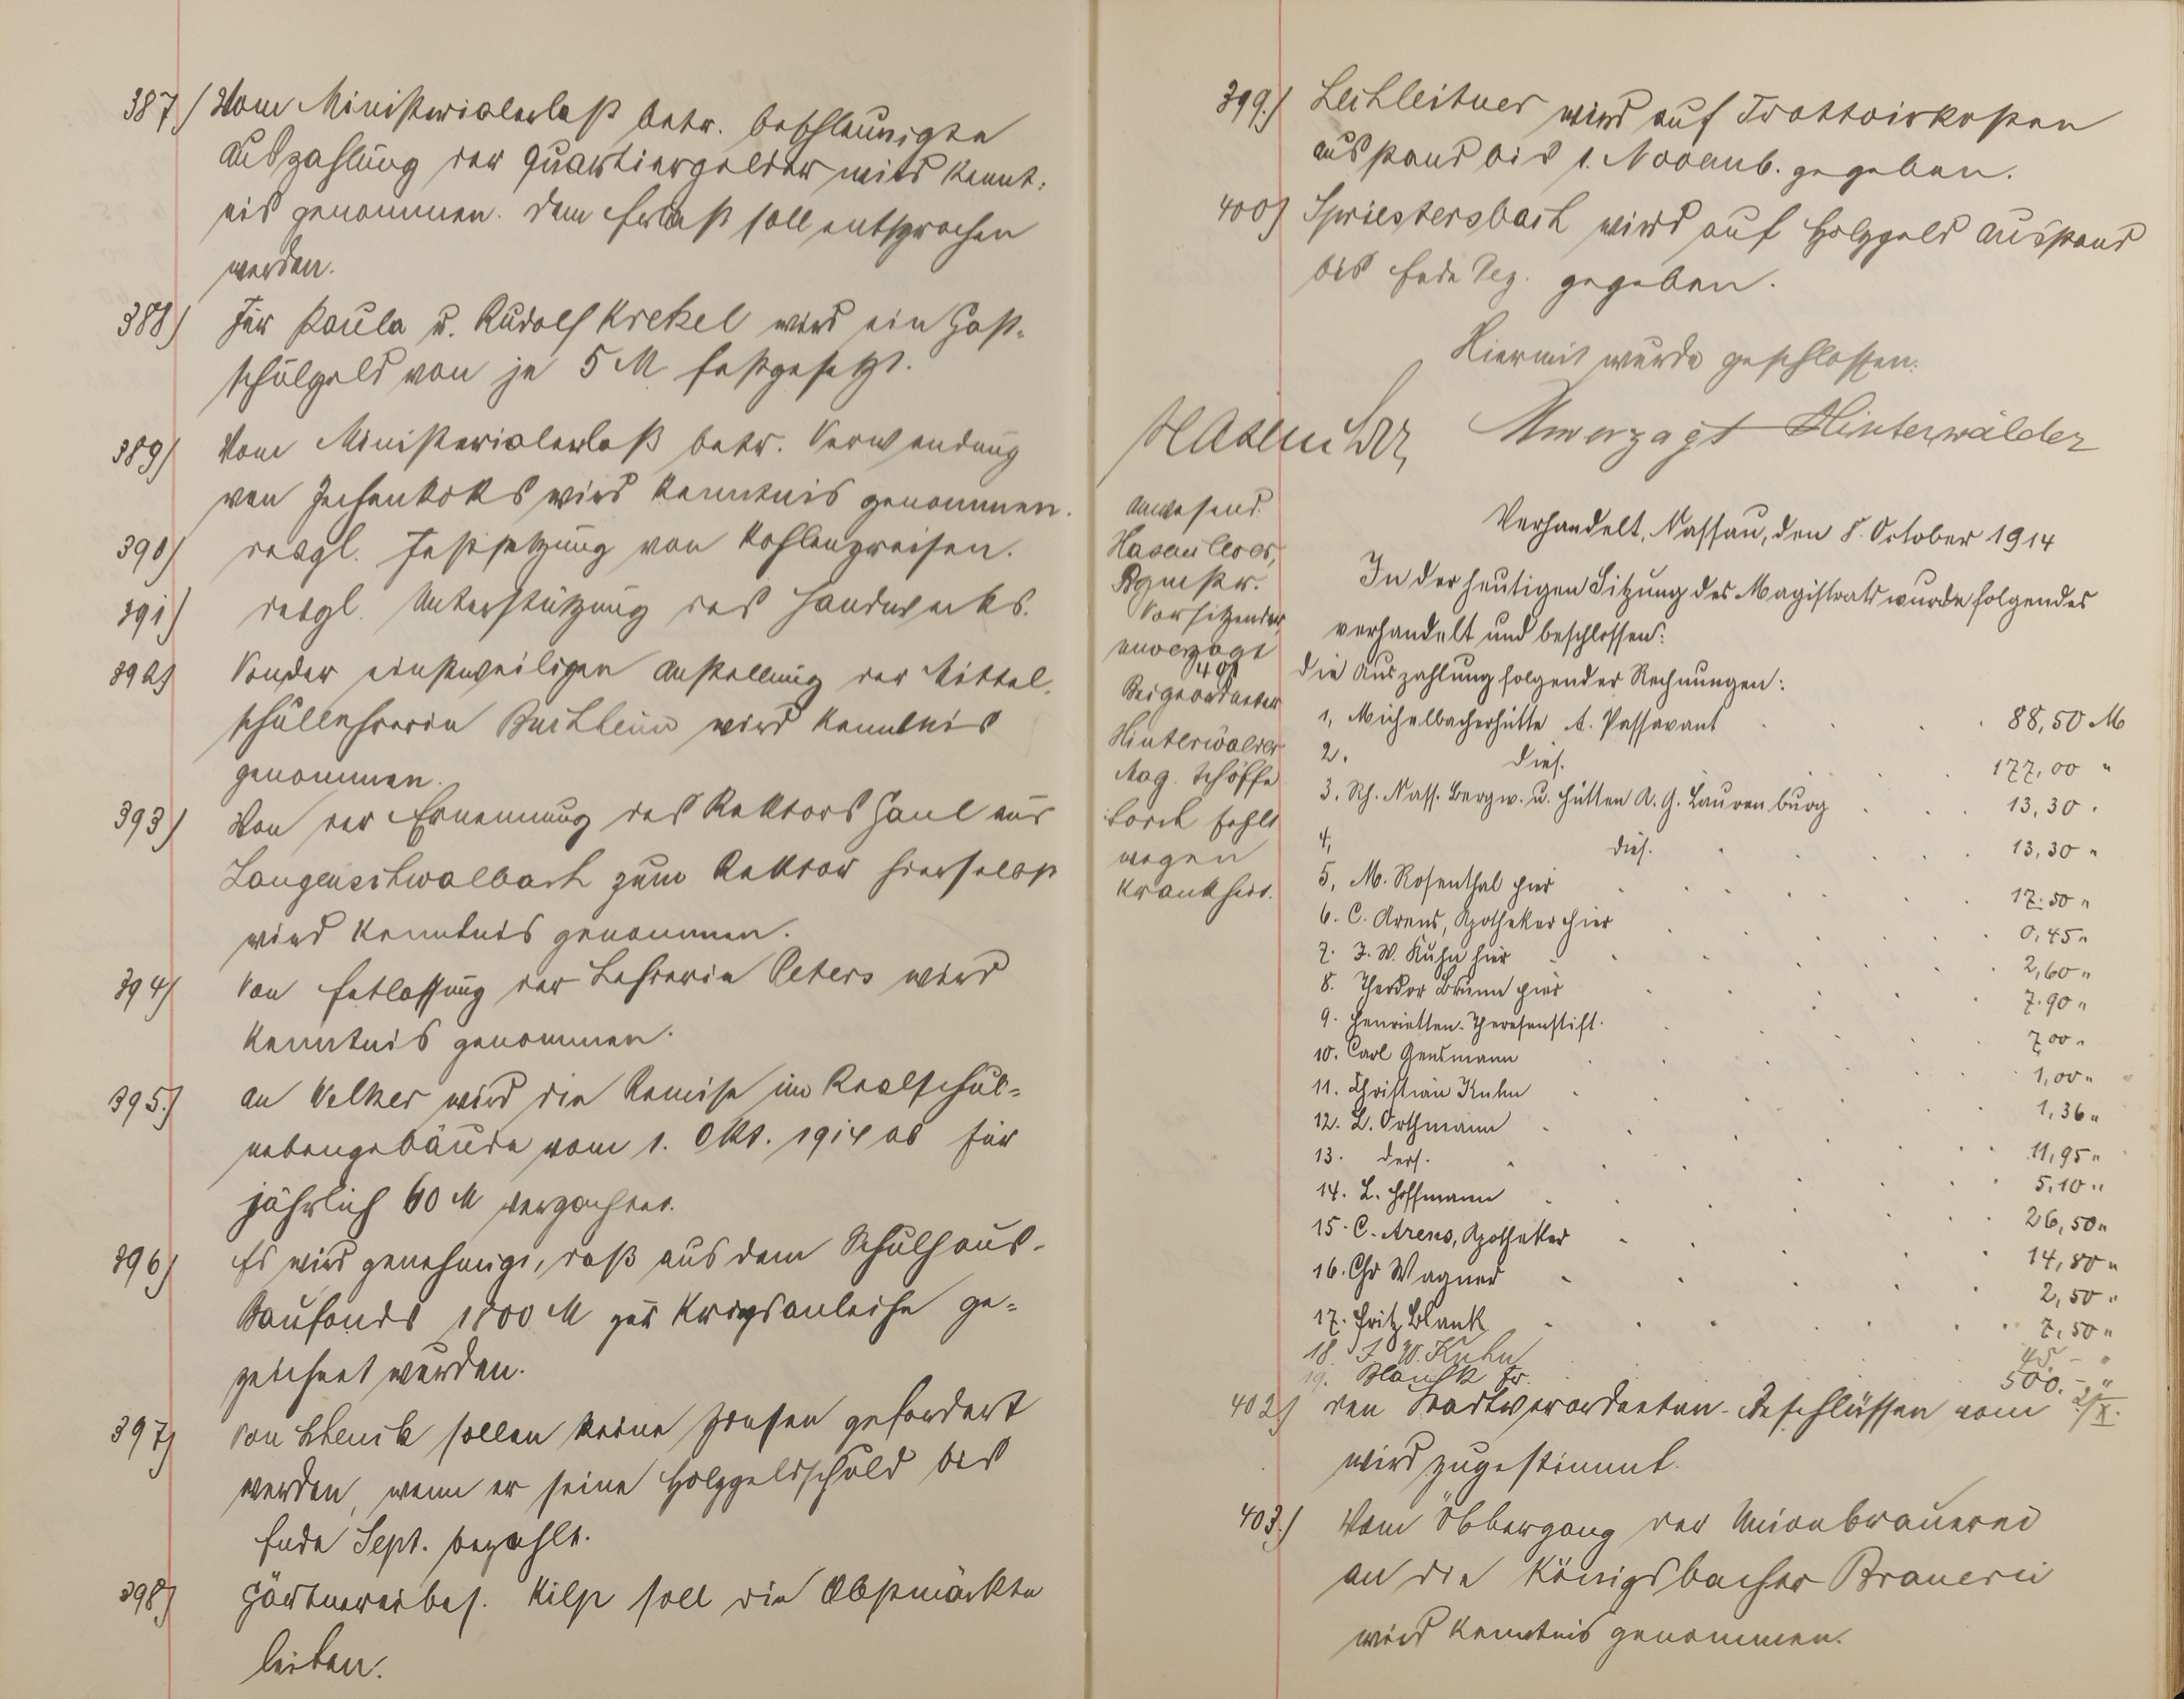 387) Vom Ministerialerlaß betr. beschleunigte
Auszahlung der Quartiergelder wird Kennt-
nis genommen. Dem Erlaß soll entsprochen
werden.
388) Für Paula u. Rudolf Krekel wird ein Gast-
schulgeld von je 5 M festgesetzt.
389) Vom Ministerialerlaß betr. Verwendung
von Zechenkoks wird Kenntnis genommen.
390) desgl. Festsetzung von Kohlenpreisen.
391) desgl. Unterstützung des Handwerks.
392) Von der einstweiligen Anstellung der Mittel-
schullehrerin wird Kenntnis
genommen.
393) Von der Ernennung des Rektors Haul aus
Langenschwalbach zum Rektor hierselbst
wird Kenntnis genommen.
394) Von Entlassung der Lehrerin Peters wird
Kenntnis genommen.
395.) An Welker wird die Remise im Realschul-
nebengebäude vom 1. Okt. 1914 ab für
jährlich 60 M verpachtet.
396) Es wird genehmigt, daß aus dem Schulhaus-
Baufonds 1800 M zur Kriegsanleihe ge-
zeichnet wurden.
397) Von sollen keine Zinsen gefordert
werden, wenn er seine Holzgeldschuld bis
Ende Sept. bezahlt.
398) Gärtnereibes. Kilp soll die Obstmärkte
leiten.
399.) Lechleitner wird auf Trottoirkosten
Ausstand bis 1. Novemb. gegeben.
400) Spriestersbach wird auf Holzgeld Ausstand
bis Ende Dez. gegeben.
Hiermit wurde geschlossen.
Hasenclever Unverzagt Hinterwälder
Anwesend:
Hasenclever,
Bgmstr.
Vorsitzender,
Unverzagt
Beigeordneter
Hinterwälder
Mag. Schöffe
Lorch fehlt
wegen
Krankheit.
Verhandelt, Nassau, den 8. October 1914
In der heutigen Sitzung des Magistrats wurde folgendes
verhandelt und beschlossen:
401 Die Auszahlung folgender Rechnungen:
1, Michelbacherhütte A. Passavant 88,50 M
2. dies. 177,00 "
3. Rh. Nass. Bergw. u. Hütten A. G. Laurenburg 13,30 "
4, dies. 13,30 "
5, M. Rosenthal hier 17.50 "
6. C. Arens, Apotheker hier 0,45 "
7. J. W. Kuhn hier 2,60 "
8. Theodor Brunn hier 7.90 "
9. Henrietten-Theresenstift. 7,00 "
10. Carl Gensmann 1,00 "
11. Christian Kuhn 1,36 "
12. L. Orthmann 11,95 "
13. ders. 5,10 "
14. L. Hoffmann 26,50 "
15. C. Arens, Apotheker 14,80 "
16. Chr Wagner 2,50 "
17. Fritz Blank 7,50 "
18. J. W. Kuhn 45. - "
19. Blank Fr. 500. - "
402) Den Stadtverordneten-Beschlüssen vom 2/X.
wird zugestimmt.
403.) Vom Übergang der Unionbrauerei
an die Königsbacher Brauerei
wird Kenntnis genommen.